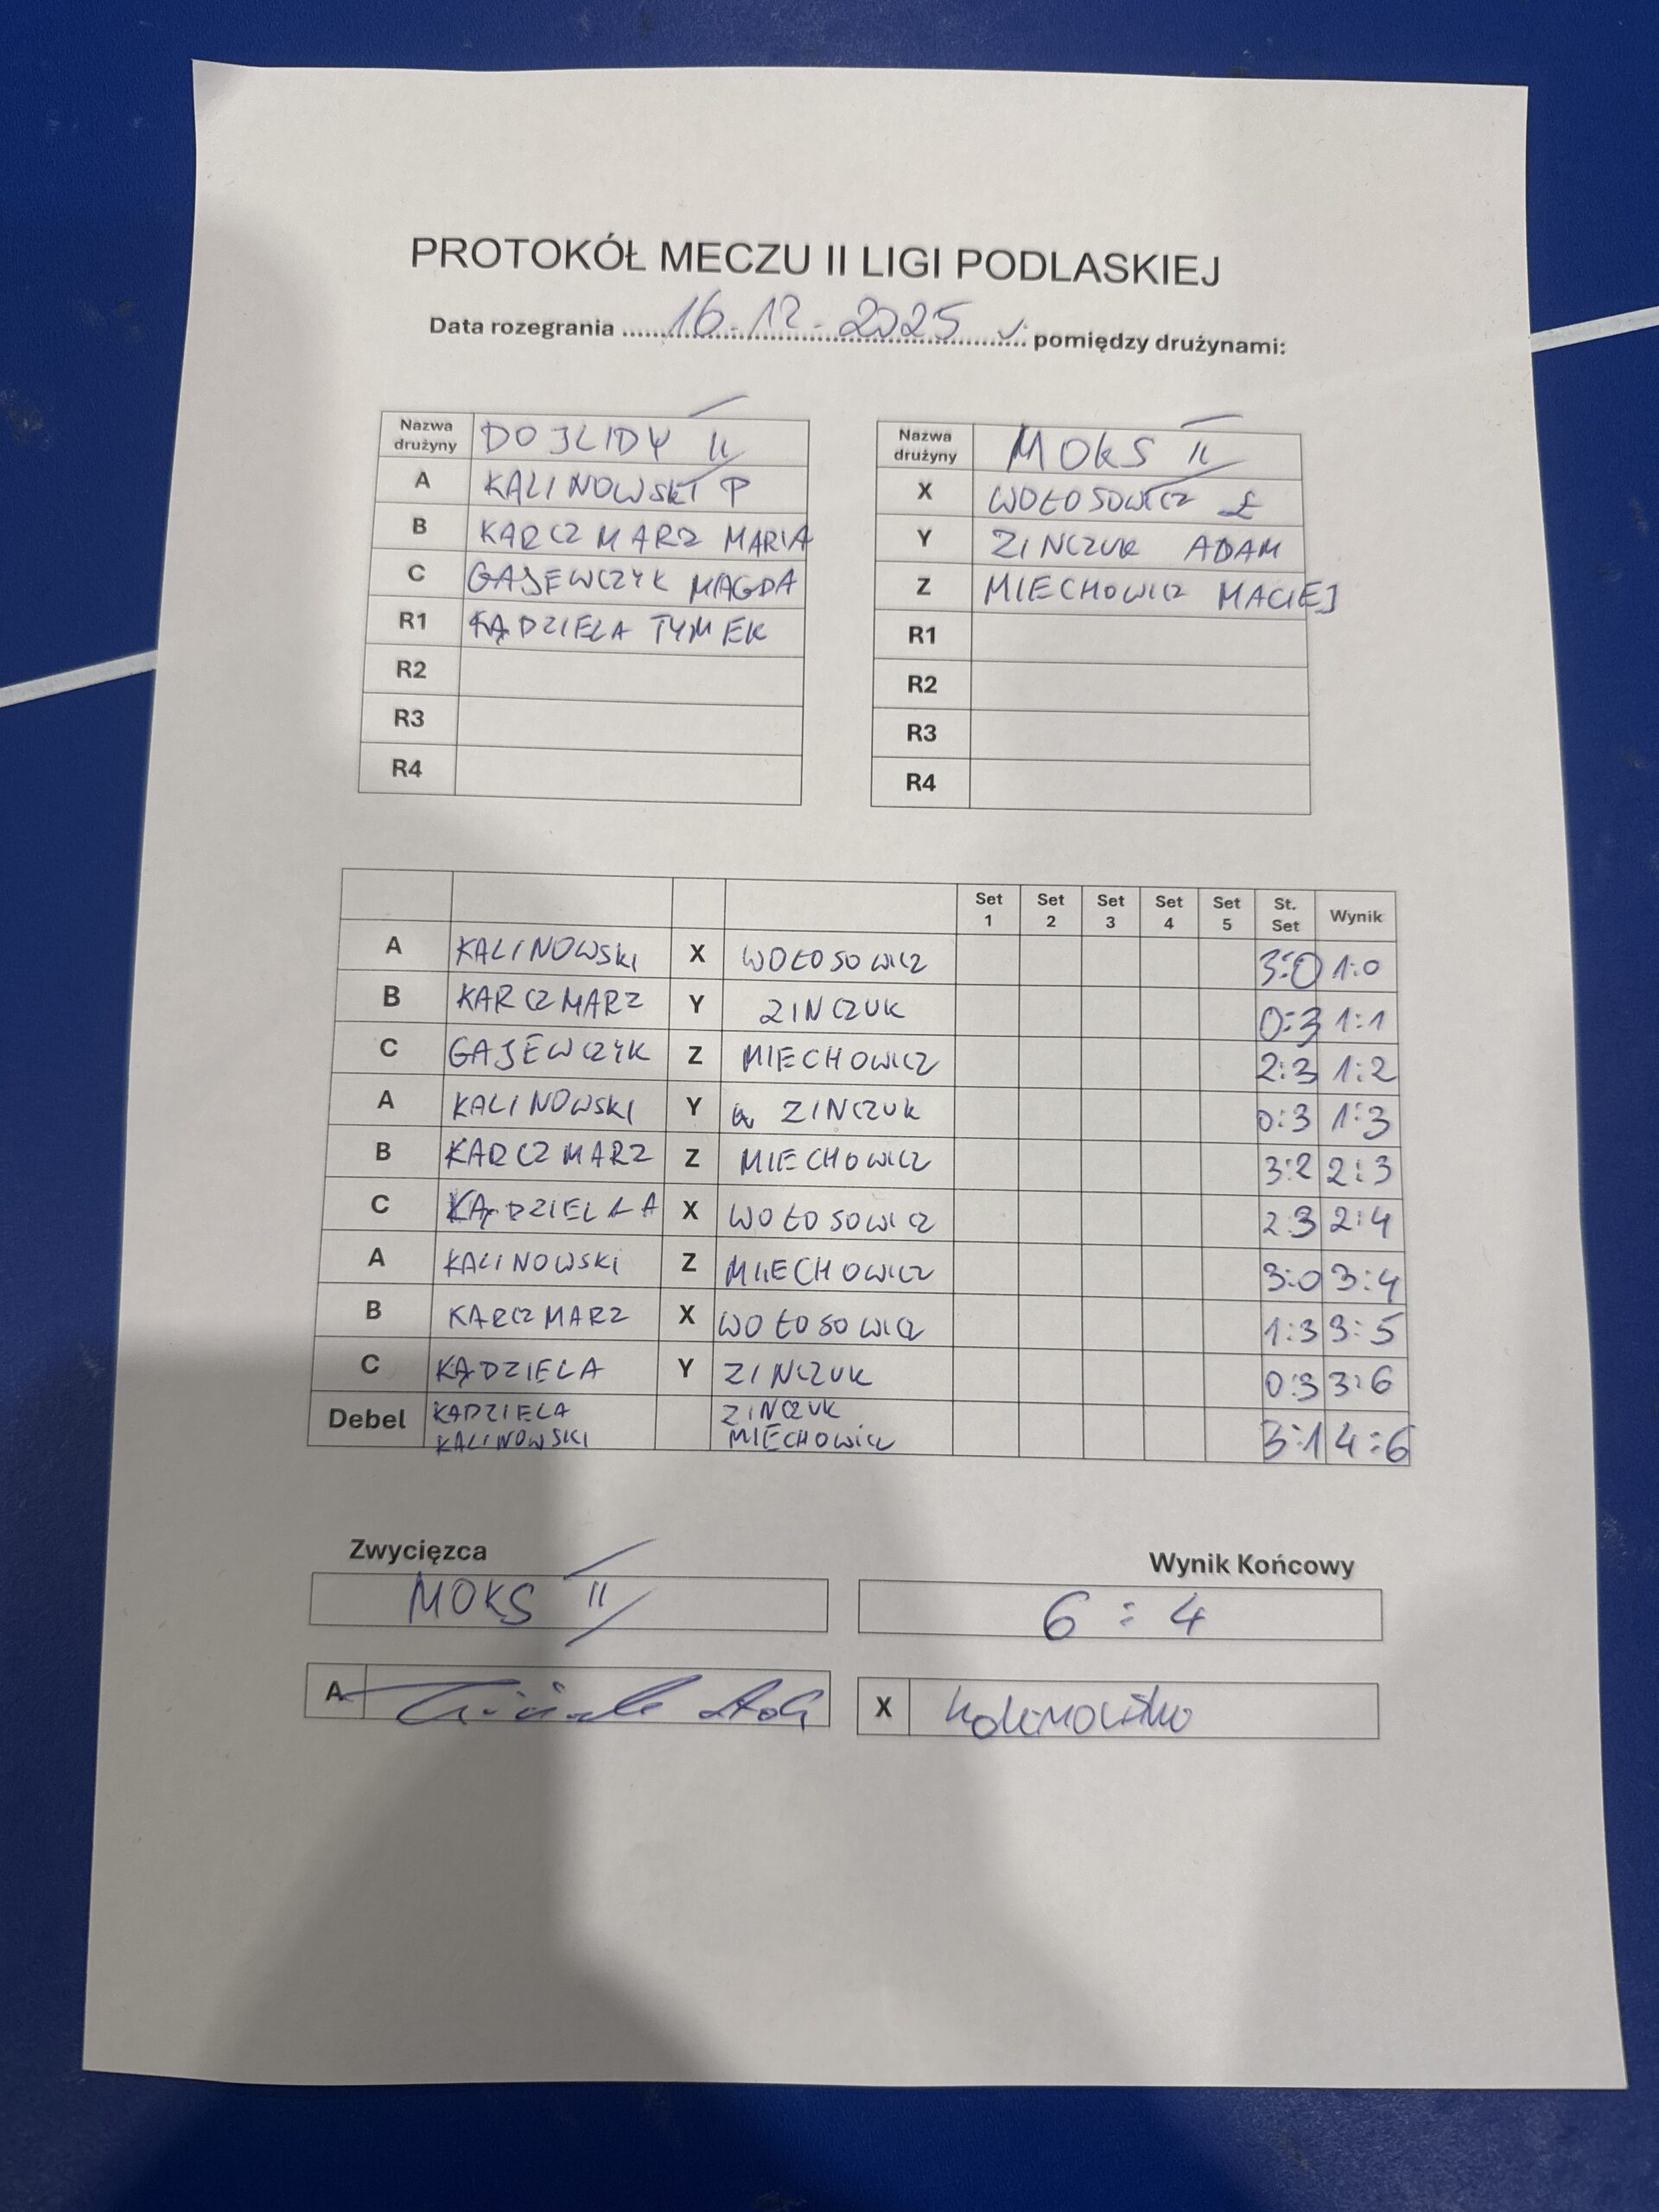 PROTOKÓŁ MECZU II LIGI PODLASKIEJ
Data rozegrania 16.12.2025 r. pomiędzy drużynami:
Nazwa drużyny DOJLIDY II
A KALINOWSKI P
B KARCZMARZ MARIA
C GAJEWCZYK MAGDA
R1 KĄDZIELA TYMEK
R2
R3
R4
Nazwa drużyny MOKS II
X WOŁOSOWICZ Ł
Y ZINCZUK ADAM
Z MIECHOWICZ MACIEJ
R1
R2
R3
R4
Set 1 Set 2 Set 3 Set 4 Set 5 St. Set Wynik
A KALINOWSKI X WOŁOSOWICZ 3:0 1:0
B KARCZMARZ Y ZINCZUK 0:3 1:1
C GAJEWCZYK Z MIECHOWICZ 2:3 1:2
A KALINOWSKI Y ZINCZUK 0:3 1:3
B KARCZMARZ Z MIECHOWICZ 3:2 2:3
C KĄDZIELA X WOŁOSOWICZ 2:3 2:4
A KALINOWSKI Z MIECHOWICZ 3:0 3:4
B KARCZMARZ X WOŁOSOWICZ 1:3 3:5
C KĄDZIELA Y ZINCZUK 0:3 3:6
Debel KĄDZIELA KALINOWSKI ZINCZUK MIECHOWICZ 3:1 4:6
Zwycięzca
MOKS II
Wynik Końcowy
6:4
A
X